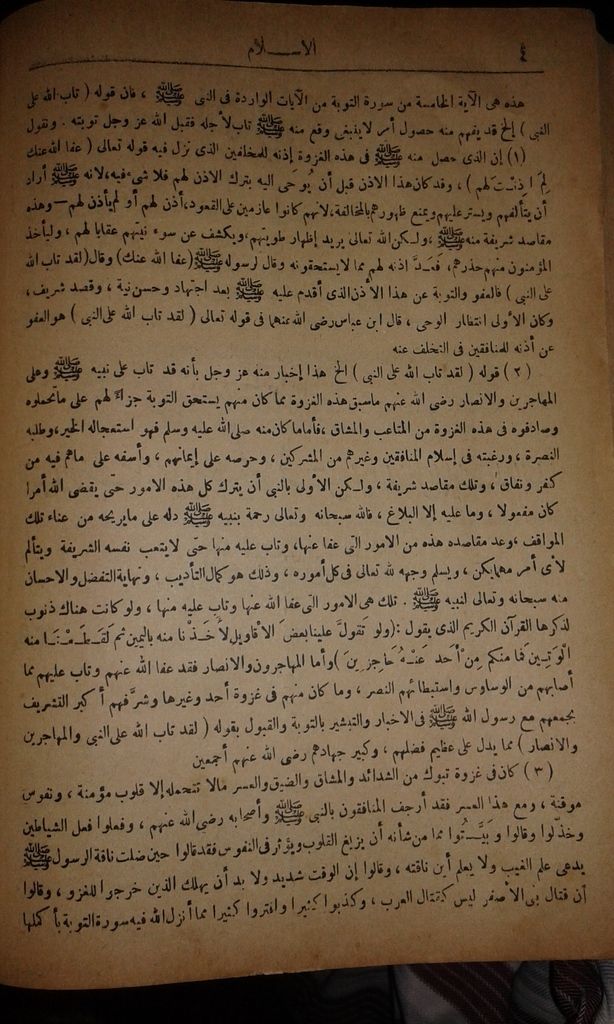 ٤
الاسلام
هذه هي الآية الخامسة من سورة التوبة من الآيات الواردة في النبي ﷺ ، فان قوله ( تاب الله على
النبي ) الخ قد يفهم منه حصول أمر لا ينبغي وقع منه ﷺ تاب لأجله فقبل الله عز وجل توبته . ونقول
(١) إن الذي حصل منه ﷺ في هذه الغزوة إذنه للمخلفين الذي نزل فيه قوله تعالى ( عفا الله عنك
لِمَ أَذِنْتَ لهم ) ، وقد كان هذا الاذن قبل أن يُوحَى اليه بترك الاذن لهم فلا شيء فيه ، لانه ﷺ أراد
أن يتألفهم ويستر عليهم ويمنع ظهورهم بالمخالفة ، لانهم كانوا عازمين على القعود ، أذن لهم أو لم يأذن لهم — وهذه
مقاصد شريفة منه ﷺ ، ولكن الله تعالى يريد إظهار طويتهم ، ويكشف عن سوء نيتهم عقابا لهم ، وليأخذ
المؤمنون منهم حذرهم ، فَعَدَّ اذنه لهم مما لا يستحقونه وقال لرسوله ﷺ (عفا الله عنك) وقال (لقد تاب الله
على النبي ) فالعفو والتوبة عن هذا الأذن الذي أقدم عليه ﷺ بعد اجتهاد وحسن نية ، وقصد شريف ،
وكان الأولى انتظار الوحي ، قال ابن عباس رضى الله عنهما في قوله تعالى ( لقد تاب الله على النبي ) هو العفو
عن أذنه للمنافقين في التخلف عنه
( ٢ ) قوله ( لقد تاب الله على النبي ) الخ هذا إخبار منه عز وجل بأنه قد تاب على نبيه ﷺ وعلى
المهاجرين والانصار رضى الله عنهم ماسبق هذه الغزوة مما كان منهم يستحق التوبة جزاءً لهم على ماتحملوه
وصادفوه في هذه الغزوة من المتاعب والمشاق ، فأما ما كان منه صلى الله عليه وسلم فهو استعجاله الخير ، وطلبه
النصرة ، ورغبته في إسلام المنافقين وغيرهم من المشركين ، وحرصه على إيمانهم ، وأسفه على ماهم فيه من
كفر ونفاق ، وتلك مقاصد شريفة ، ولكن الأولى بالنبي أن يترك كل هذه الامور حتى يقضى الله أمرا
كان مفعولا ، وما عليه إلا البلاغ ، فالله سبحانه وتعالى رحمة بنبيه ﷺ دله على مايريحه من عناء تلك
المواقف ، وعد مقاصده هذه من الامور التي عفا عنها ، وتاب عليه منها حتى لا يتعب نفسه الشريفة ويتألم
لأى أمر مهما يكن ، ويسلم وجهه لله تعالى في كل أموره ، وذلك هو كمال التأديب ، ونهاية التفضل والاحسان
منه سبحانه وتعالى لنبيه ﷺ . تلك هي الامور التي عفا الله عنها وتاب عليه منها ، ولو كانت هناك ذنوب
لذكرها القرآن الكريم الذي يقول : (ولو تَقَوَّلَ علينا بعضَ الأقاويل لأَخَذْنا منه باليمين ثم لَقَطَعْنَا منه
الْوَتِينَ فما منكم مِنْ أَحَدٍ عَنْهُ حَاجِزِينَ ) وأما المهاجرون والانصار فقد عفا الله عنهم وتاب عليهم مما
أصابهم من الوساوس واستبطائهم النصر ، وما كان منهم في غزوة أحد وغيرها وشرَّفهم أكبر التشريف
بجمعهم مع رسول الله ﷺ في الاخبار والتبشير بالتوبة والقبول بقوله ( لقد تاب الله على النبي والمهاجرين
والانصار ) مما يدل على عظيم فضلهم ، وكبير جهادهم رضى الله عنهم أجمعين
( ٣ ) كان في غزوة تبوك من الشدائد والمشاق والضيق والعسر مالا تتحمله إلا قلوب مؤمنة ، ونفوس
موقنة ، ومع هذا العسر فقد أرجف المنافقون بالنبي ﷺ وأصحابه رضى الله عنهم ، وفعلوا فعل الشياطين
وخذَّلوا وقالوا وَبَيَّتُوا مما من شأنه أن يزيغ القلوب ويؤثر في النفوس فقد قالوا حين ضلت ناقة الرسول ﷺ
يدعى علم الغيب ولا يعلم أين ناقته ، وقالوا إن الوقت شديد ولا بد أن يهلك الذين خرجوا للغزو ، وقالوا
أن قتال بنى الأصفر ليس كقتال العرب ، وكذبوا كثيرا وافتروا كثيرا مما أنزل الله فيه سورة التوبة بأكملها